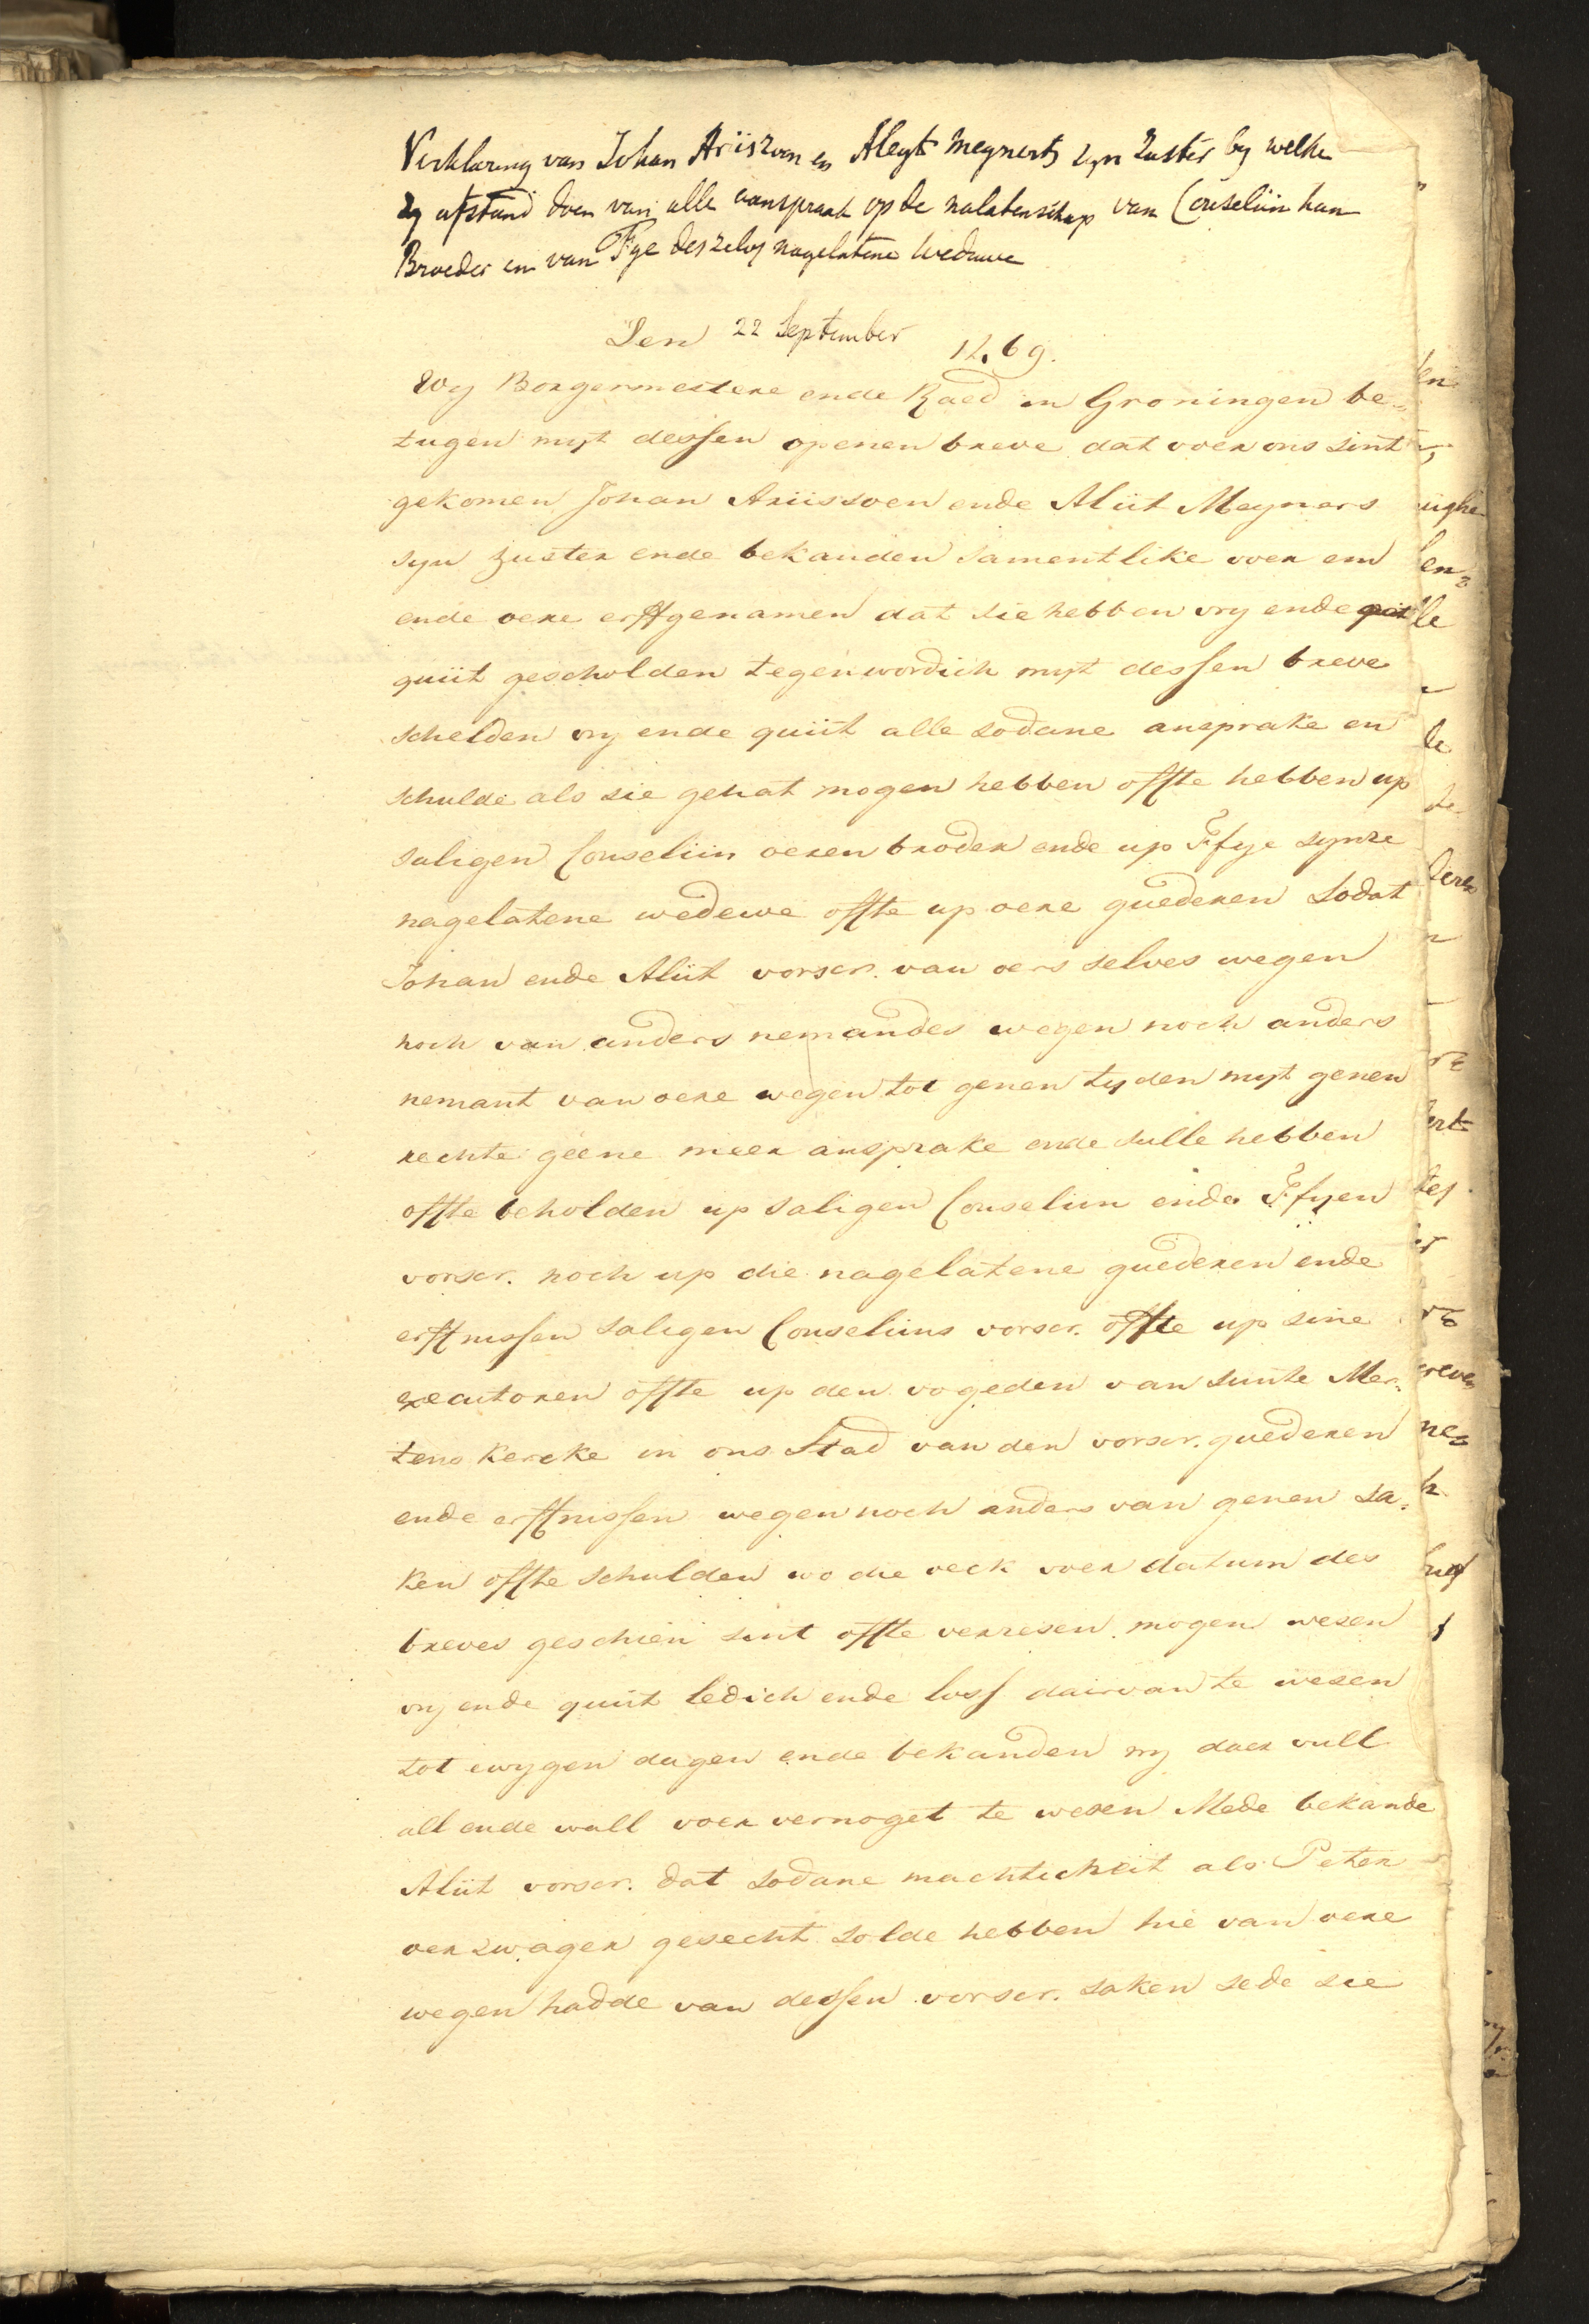 Verklaring van Johan Ariszoon en Aleyt Meynerts zyn Zuster by welke
zy afstand doen van alle aanspraak op de nalatenschap van Conseliin hun
Broeder en van Fye deszelvs nagelatene Weduwe
Den 22 September 1469.
Wy Borgermestere ende Raed in Groningen be=
tugen myt dessen openen breve dat voer ons sint
gekomen Johan Ariissoen ende Aliit Meyners
syn zuster ende bekanden samentlike voer em
ende oere erffgenamen dat sie hebben vry ende
quiit gescholden tegenwordich myt dessen breve
schelden vry ende quiit alle sodane ansprake en
schulde als sie gehat mogen hebben offte hebben up
saligen Conseliin oeren broder ende up Ffye synre
nagelatene wedewe offte up oere guederen Sodat
Johan ende Aliit vorscr. van oers selves wegen
noch van anders nemandes wegen noch anders
nemant van oere wegen tot genen tyden myt genen
rechte geene meer ansprake ende sulle hebben
offte beholden up saligen Conseliin ende Ffyen
vorscr. noch up die nagelatene guederen ende
erffnissen saligen Conseliins vorscr. offte up sine
executoren offte up den vogeden van sunte Mer=
tens kercke in ons Stad van den vorscr. guederen
ende erffnissen wegen noch anders van genen sa=
ken offte schulden wo die oeck voer datum des
breves geschien sint offte verresen mogen wesen
vry ende quiit ledich ende loss dairvan te wesen
tot ewygen dagen ende bekanden vry daer vull
all ende wall voer vernoget te wesen Mede bekande
Aliit vorscr. dat sodane machticheit als Peter
oer zwager gesecht solde hebben hie van oere
wegen hadde van dessen vorscr. saken sede sie